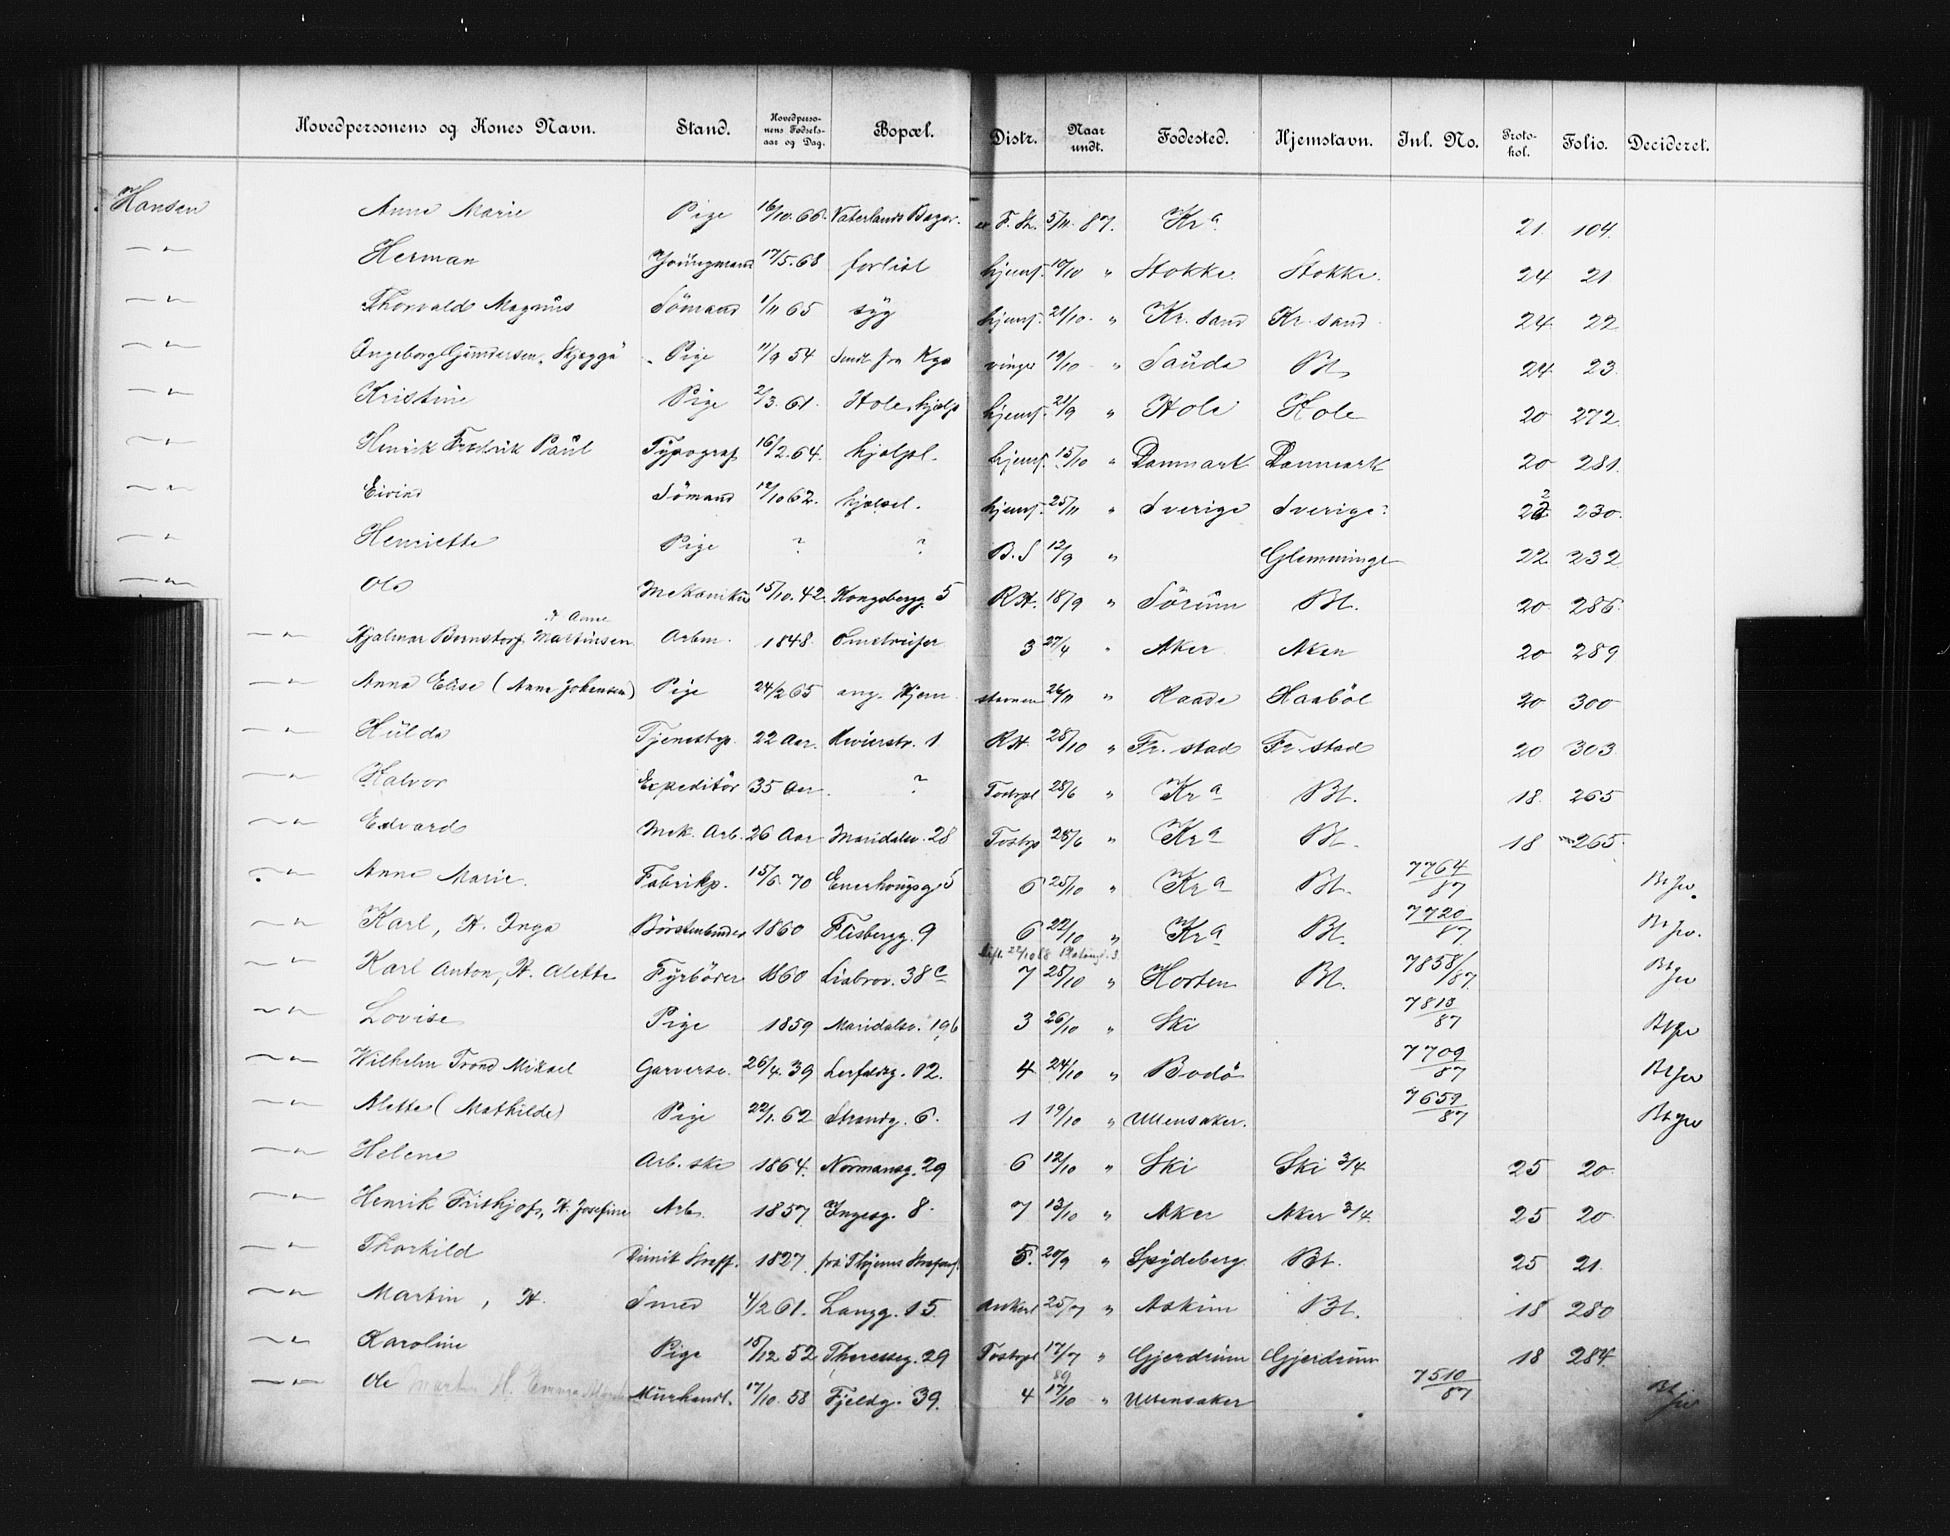 Hovedpersonens og Kones Navn. Stand. Hovedpersonens Fødselsaar og Dag. Bopæl. Distr. Naar undt. Fødested. Hjemstavn. Inl. No. Protokol. Folio. Decideret.
Hansen Anne Marie Pige 16/10.66. Vaterlands Bazar. F. St. 5/11. 87. Kr a 21. 104.
—"— Herman Youngmand 17/5.68 forlist hjemf. 10/10 " Stokke. Stokke. 24 21.
—"— Thorvald Magnus Sömand 1/11 65 syg hjemf. 21/10. " Kr. sand Kr. sand 24 22
—"— Ingeborg Gundersen, Skjeggö Pige 11/9 54 Sendt fra Kgs vinger 19/10 " Sauda Bt. 24 23.
—"— Kristine Pige 2/3. 61. Hole, hjælp hjemf. 21/9 " Hole Hole 20 272.
—"— Henrik Fredrik Paul Typograf 16/2.64. hjælpl. hjemf. 15/10 " Danmark Danmark 20 281.
—"— Eivind Sömand 12/10 62. hjælpel. hjemf. 25/11 " Sverige Sverige? 22 230.
—"— Henriette Pige ? ? B. S 12/9 " Glemminge 22 232
—"— Ole Mekanikus 15/10. 42. Kongsbergg. 5 RH. 18/9 " Sörum Bt. 20 286.
—"— Hjalmar Bernstorf Martinsen H Anne Arbm. 1848. Omstreifer 3 27/4 " Aker Aker 20 289
—"— Anna Elise (Anne Johansen) Pige 24/2 65 ang. Hjem stavnen 26/11 " Raade Haaböl 20 300
—"— Hulda Tjenestep. 22 Aar. Revierstr. 1 RH. 28/10 " Fr. stad Fr. stad 20 303.
—"— Halvor Expeditör 35 Aar. ? Tostrpl 28/6 " Kr a Bt. 18. 265
—"— Edvard Mek. Arb. 26 Aar Maridalsv. 28 Tostrp 28/6 " Kr a Bt. 18 265.
—"— Anne Marie. Fabrikp. 15/6. 70 Enerhougsg. 5 6 25/10 " Kr a Bt. 7764/87
—"— Karl, H. Inga Börstenbinder 1860 Flisbergg. 9 6 22/10 " Kr a Bt. 7720/87
—"— Karl Anton, H. Alette Fyrböder 1860 Liabrov. 38 c 7 28/10 " Horten Bt. 7858/87
—"— Lovise Pige 1859 Maridalsv. 196 3 26/10 " Ski 7813/87
—"— Wilhelm Trond Mikael Garversv. 26/4. 39 Lerfaldsg. 12. 4 24/10 " Bodö 7709/87
—"— Alette (Mathilde) Pige 22/1. 62 Strandg. 6. 1 19/10 " Ullensaker. 7659/87
—"— Helene Arb.ske 1864. Normansg. 29 6 12/10 " Ski Ski 3/4 25 20.
—"— Henrik Frithjof, H. Josefine Arb. 1857. Ingesg. 8. 7 13/10 " Aker Aker 3/4. 25 20
—"— Thorkild Dimit Straff. 1827. fra Thjems Strafanst. 5. 20/9 " Spydeberg. Bt. 25 21.
—"— Martin, H. Smed 4/2 61. Langg. 15. Ankerl 25/7 " Askim Bt. 18 280
—"— Karoline Pige 18/12 52 Theresesg. 29 Tostrpl 17/7 " Gjerdrum Gjerdrum 18 284.
—"— Ole Martin H. Emma Murhandl. 17/10. 58 Fjeldg. 39. 4 17/10 " Ullensaker 7510/87